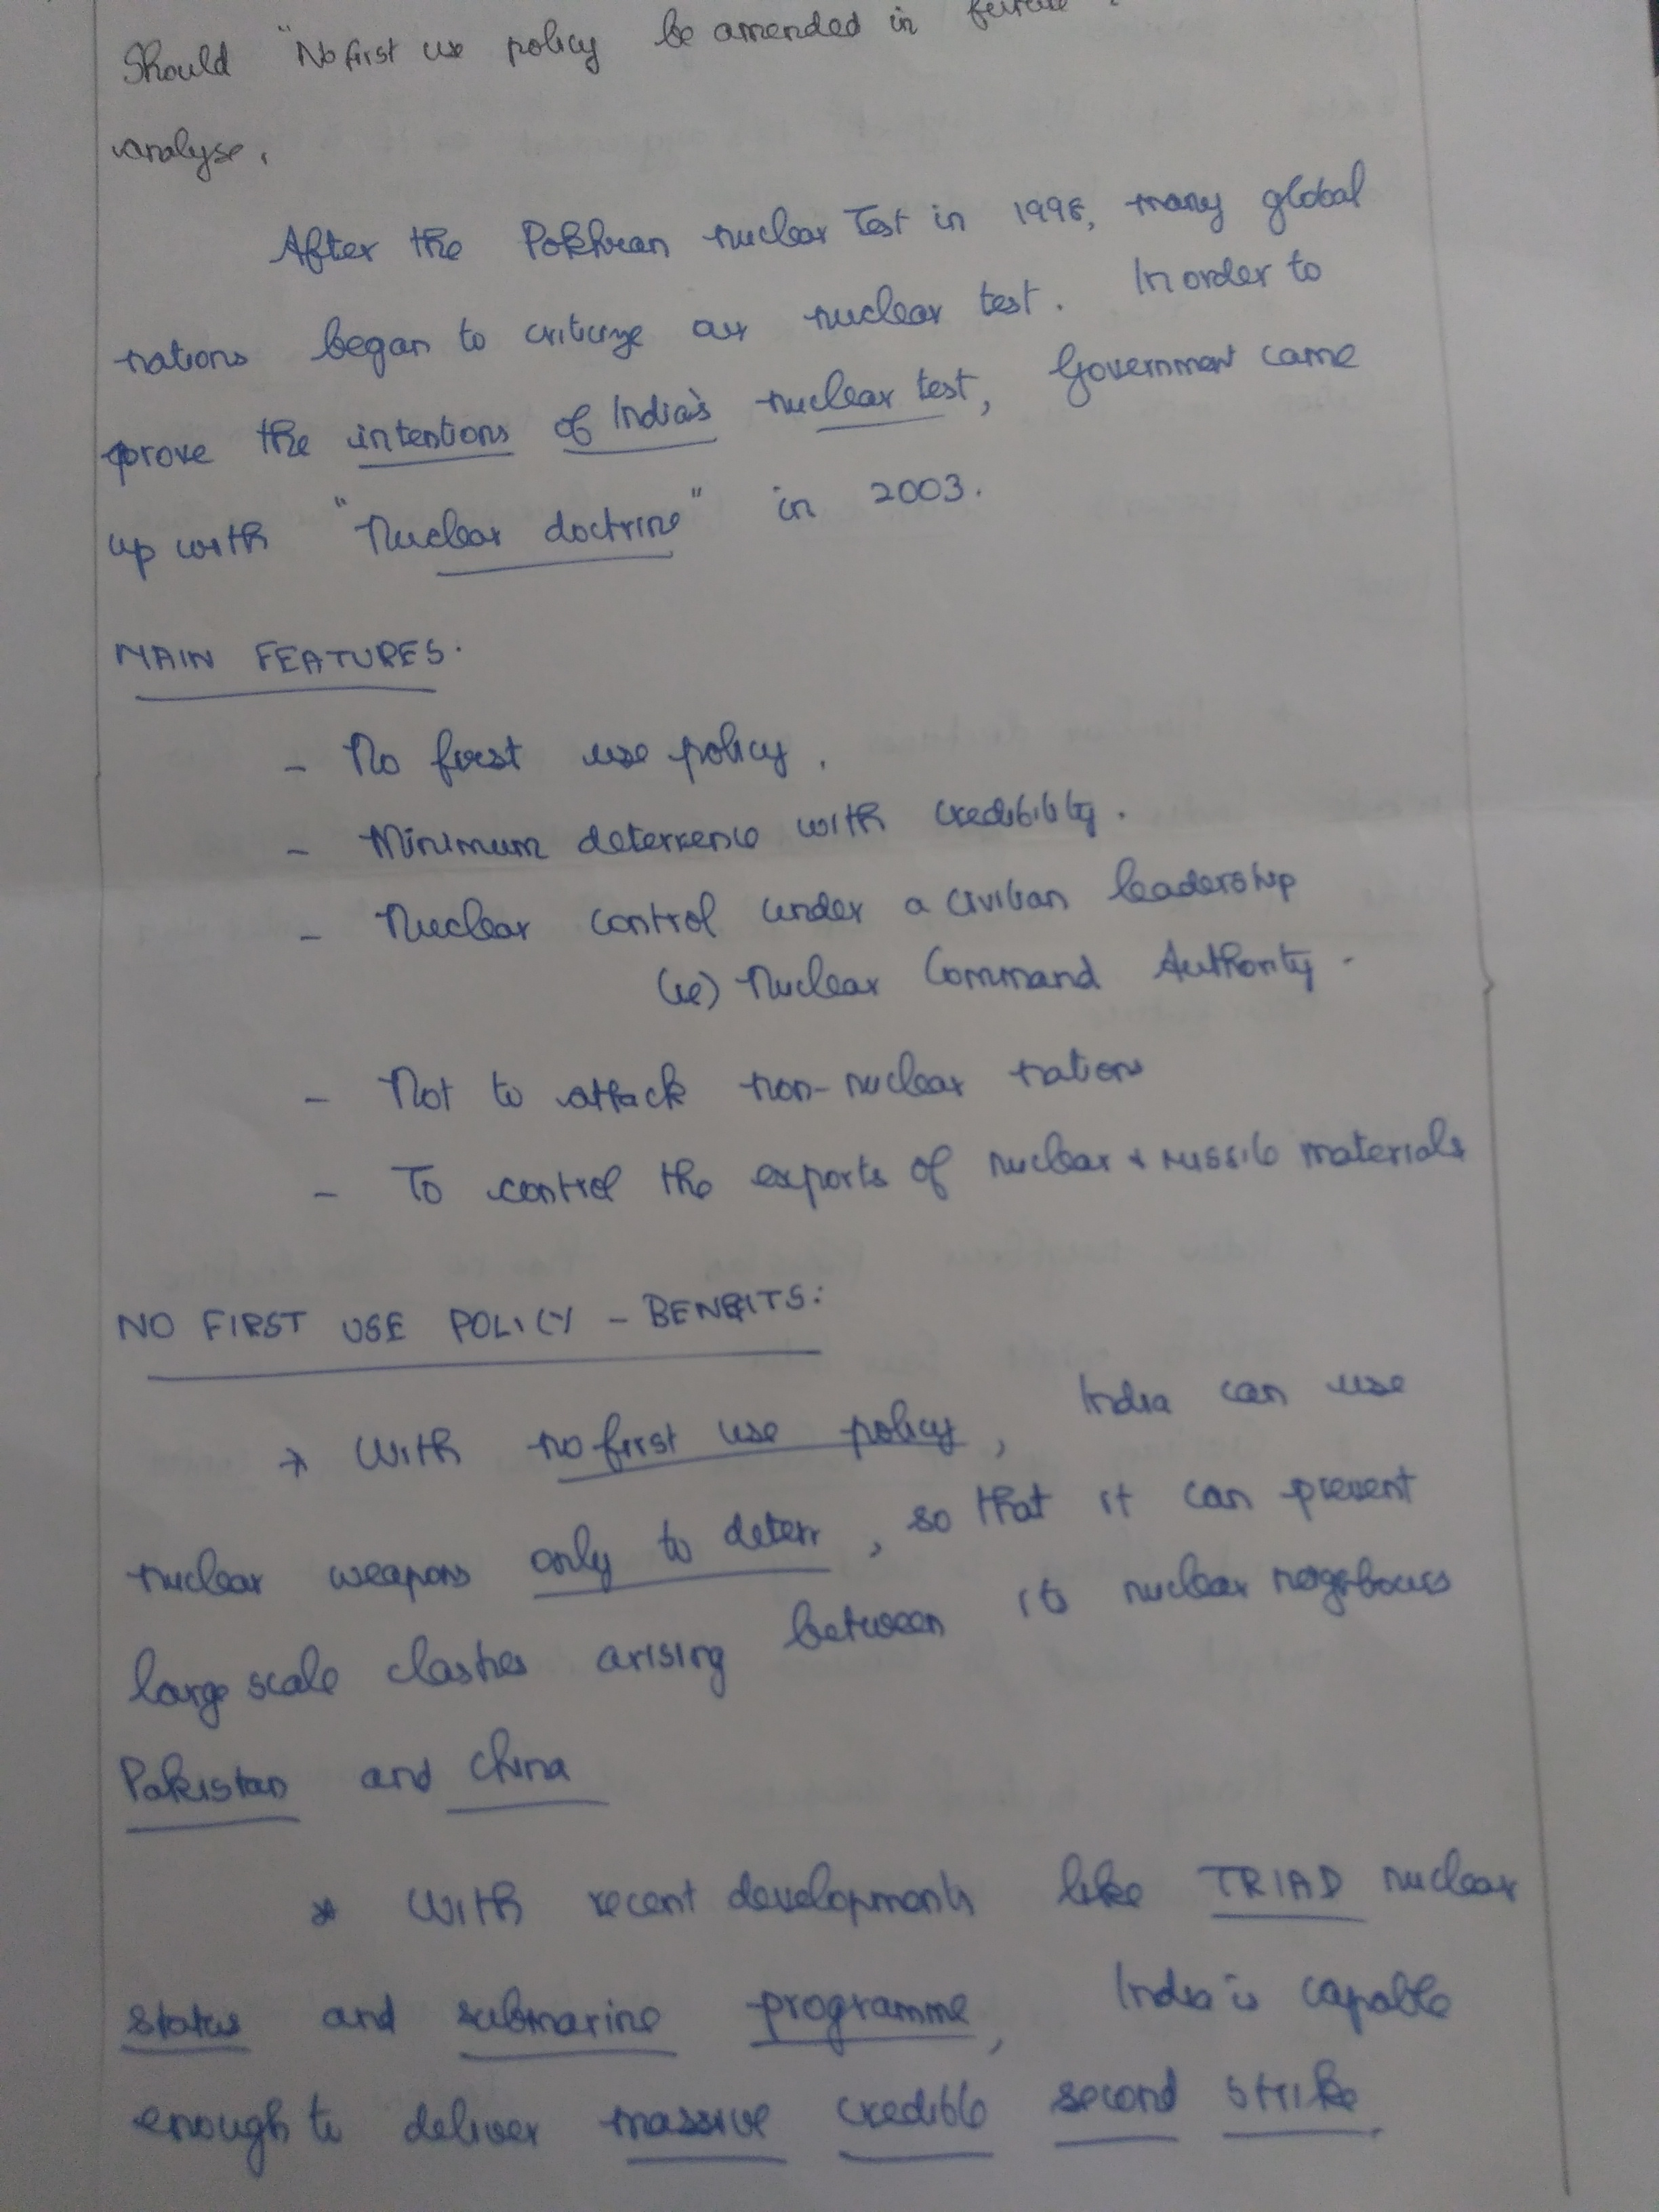 Should "No first use policy be amended in future
analyse.
After the Pokhran nuclear Test in 1998, many global
nations began to criticize our nuclear test. In order to
prove the intentions of India's nuclear test, Government came
up with "Nuclear doctrine" in 2003.
MAIN FEATURES.
- No first use policy.
- Minimum deterrence with credibility.
- Nuclear control under a civilian leadership
(ie) Nuclear Command Authority.
- Not to attack non-nuclear nations
- To control the exports of nuclear & missile materials
NO FIRST USE POLICY - BENEFITS:
→ With no first use policy, India can use
nuclear weapons only to deterr, so that it can prevent
large scale clashes arising between its nuclear neighbours
Pakistan and China
* With recent developments like TRIAD nuclear
status and submarine programme, India is capable
enough to deliver massive credible second strike.